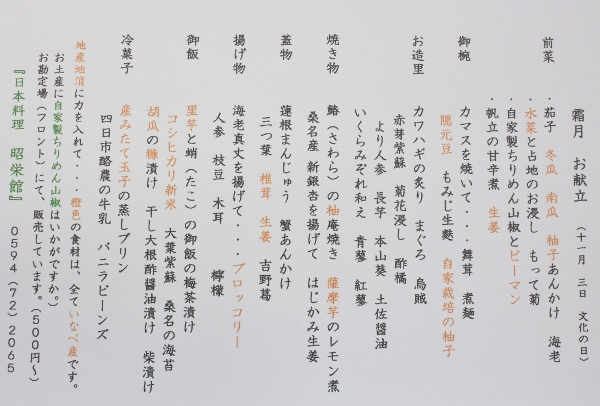 霜月　お献立　（十一月　三日　文化の日）
前菜　・茄子　冬瓜　南瓜　柚子あんかけ　海老
・水菜と占地のお浸し　もって菊
・自家製ちりめん山椒とピーマン
・帆立の甘辛煮　生姜
御椀　カマスを焼いて・・・舞茸　煮麺
隠元豆　もみじ生麩　自家栽培の柚子
お造里　カワハギの炙り　まぐろ　烏賊
赤芽紫蘇　菊花浸し　酢橘
より人参　長芋　本山葵　土佐醤油
いくらみぞれ和え　青蓼　紅蓼
焼き物　鰆（さわら）の柚庵焼き　薩摩芋のレモン煮
桑名産　新銀杏を揚げて　はじかみ生姜
蓋物　蓮根まんじゅう　蟹あんかけ
三つ葉　椎茸　生姜　吉野葛
揚げ物　海老真丈を揚げて　・ブロッコリー
人参　枝豆　木耳　檸檬
御飯　里芋と蛸（たこ）の御飯の梅茶漬け
コシヒカリ新米　大葉紫蘇　桑名の海苔
胡瓜の糠漬け　干し大根酢醤油漬け　柴漬け
冷菓子　産みたて玉子の蒸しプリン
四日市酪農の牛乳　バニラビーンズ
地産地消に力を入れて・・・橙色の食材は、全ていなべ産です。
お土産に自家製ちりめん山椒はいかがですか。）
お勘定場（フロント）にて、販売しています。（５００円～）
『日本料理　昭栄館』　０５９４（７２）２０６５